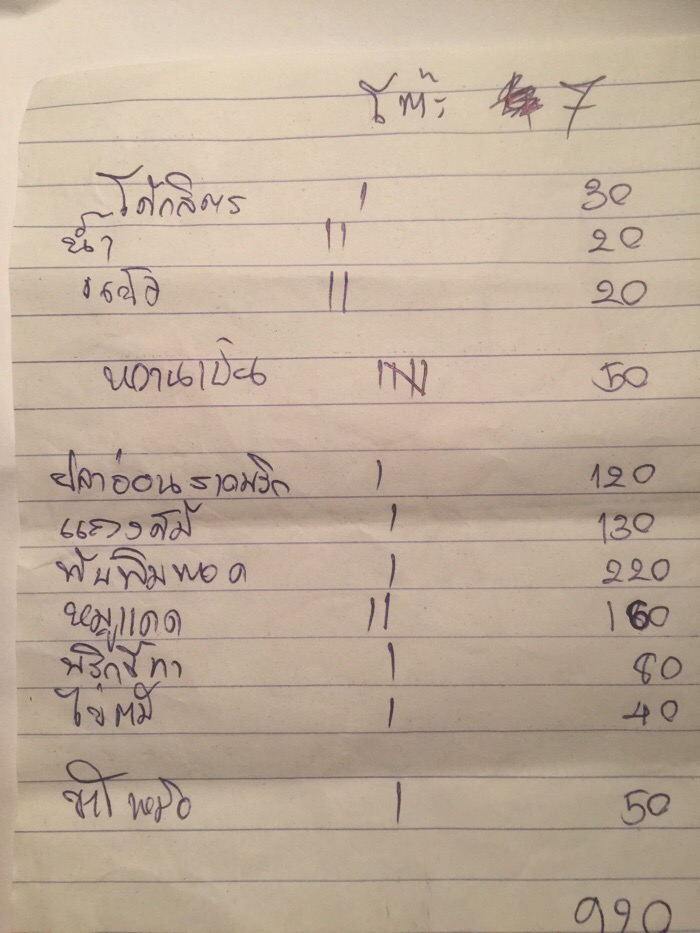 โต๊ะ 7
โค้กลิตร | 30
น้ำ || 20
|| 20
หวานเย็น 50
ปลาอ่อนราดพริก | 120
แกงส้ม | 130
ทับทิมทอด | 220
หมูแดด || 160
| 80
ไข่ต้ม | 40
หม้อ | 50
920